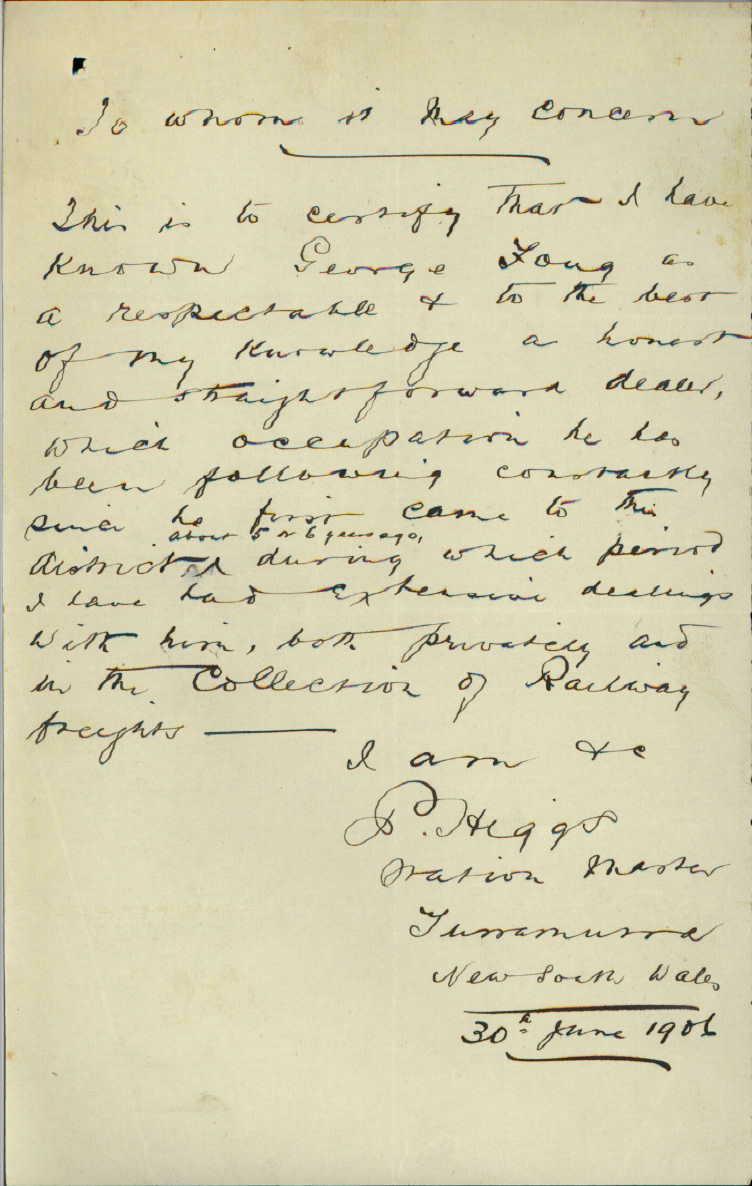 To whom it May Concern
This is to certify that I have
Known George Fong as
a respectable & to the best
of my Knowledge a honest
and straightforward dealer,
which occupation he has
been following constantly
since he first came to this
about 5 or 6 years ago,
district & during which period
I have had extensive dealings
with him, both privately and
in the Collection of Railway
freights —
I am &c
P. Higgs
Station Master
Turramurra
New South Wales
30th June 1906